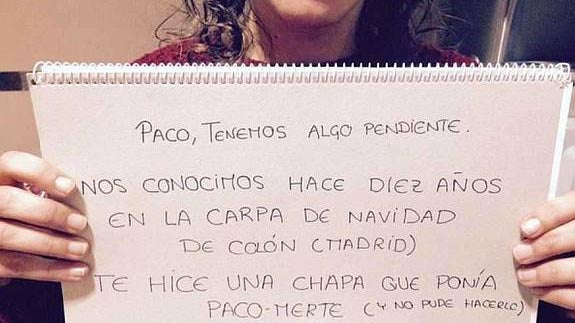 PACO, TENEMOS ALGO PENDIENTE.
NOS CONOCIMOS HACE DIEZ AÑOS
EN LA CARPA DE NAVIDAD
DE COLÓN (MADRID)
TE HICE UNA CHAPA QUE PONÍA
PACO-MERTE (Y NO PUDE HACERLO)